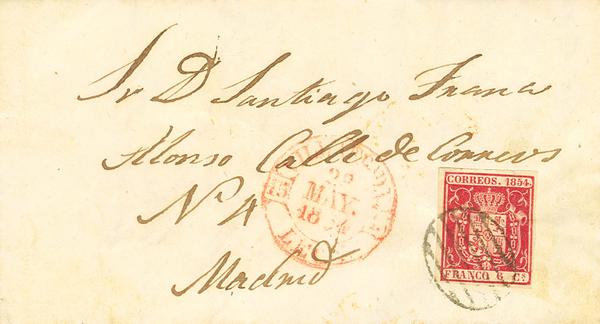 Sr D Santiago Frana
Alonso Calle de Correos
Nº 4
Madrid
MAY.
18
LE
CORREOS. 1854.
FRANCO 6 Cs